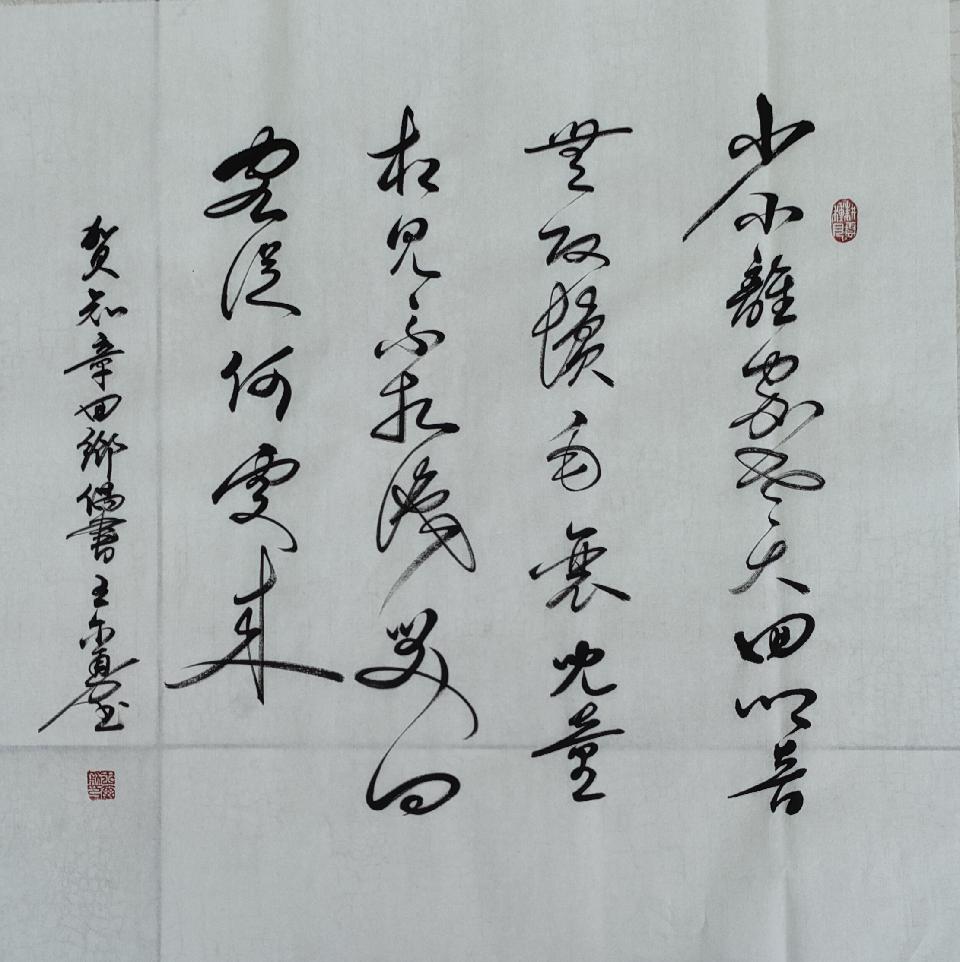 少小離家老大回鄉音
無改鬢毛衰兒童
相見不相識笑問
客從何處來
賀知章回鄉偶書 王